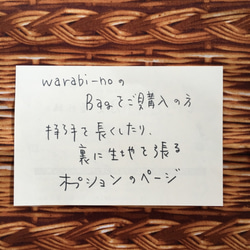 warabi-noの
Bagでご購入の方
持ち手を長くしたり、
裏に生地を張る
オプションのページ